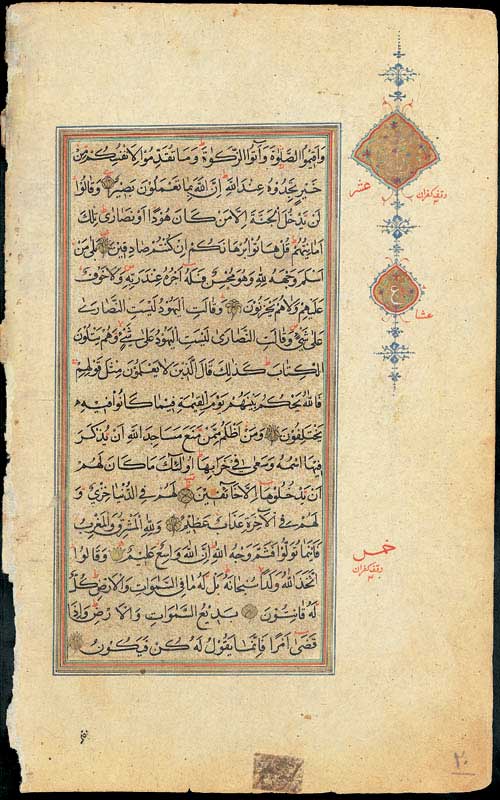 وَاَقِيمُوا الصَّلٰوةَ وَاٰتُوا الزَّكٰوةَ وَمَا تُقَدِّمُوا لِاَنْفُسِكُمْ مِنْ
خَيْرٍ تَجِدُوهُ عِنْدَ اللّٰهِ اِنَّ اللّٰهَ بِمَا تَعْمَلُونَ بَصِيرٌ وَقَالُوا
لَنْ يَدْخُلَ الْجَنَّةَ اِلَّا مَنْ كَانَ هُودًا اَوْ نَصَارٰى تِلْكَ
اَمَانِيُّهُمْ قُلْ هَاتُوا بُرْهَانَكُمْ اِنْ كُنْتُمْ صَادِقِينَ بَلٰى مَنْ
اَسْلَمَ وَجْهَهُ لِلّٰهِ وَهُوَ مُحْسِنٌ فَلَهُ اَجْرُهُ عِنْدَ رَبِّهِ وَلَا خَوْفٌ
عَلَيْهِمْ وَلَا هُمْ يَحْزَنُونَ وَقَالَتِ الْيَهُودُ لَيْسَتِ النَّصَارٰى
عَلٰى شَيْءٍ وَقَالَتِ النَّصَارٰى لَيْسَتِ الْيَهُودُ عَلٰى شَيْءٍ وَهُمْ يَتْلُونَ
الْكِتَابَ كَذٰلِكَ قَالَ الَّذِينَ لَا يَعْلَمُونَ مِثْلَ قَوْلِهِمْ
فَاللّٰهُ يَحْكُمُ بَيْنَهُمْ يَوْمَ الْقِيٰمَةِ فِيمَا كَانُوا فِيهِ
يَخْتَلِفُونَ وَمَنْ اَظْلَمُ مِمَّنْ مَنَعَ مَسَاجِدَ اللّٰهِ اَنْ يُذْكَرَ
فِيهَا اسْمُهُ وَسَعٰى فِي خَرَابِهَا اُولٰئِكَ مَا كَانَ لَهُمْ
اَنْ يَدْخُلُوهَا اِلَّا خَائِفِينَ لَهُمْ فِي الدُّنْيَا خِزْيٌ وَ
لَهُمْ فِي الْاٰخِرَةِ عَذَابٌ عَظِيمٌ وَلِلّٰهِ الْمَشْرِقُ وَالْمَغْرِبُ
فَاَيْنَمَا تُوَلُّوا فَثَمَّ وَجْهُ اللّٰهِ اِنَّ اللّٰهَ وَاسِعٌ عَلِيمٌ وَقَالُوا
اتَّخَذَ اللّٰهُ وَلَدًا سُبْحَانَهُ بَلْ لَهُ مَا فِي السَّمٰوَاتِ وَالْاَرْضِ كُلٌّ
لَهُ قَانِتُونَ بَدِيعُ السَّمٰوَاتِ وَالْاَرْضِ وَاِذَا
قَضٰى اَمْرًا فَاِنَّمَا يَقُولُ لَهُ كُنْ فَيَكُونُ
عشر
ع
عشا
خمس
٢٠